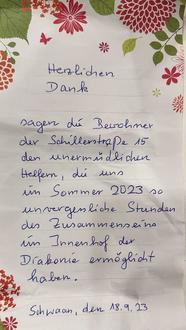 Herzlichen
Dank
sagen die Bewohner
der Schillerstraße 15
den unermüdlichen
Helfern, die uns
im Sommer 2023 so
unvergessliche Stunden
des Zusammenseins
im Innenhof der
Diakonie ermöglicht
haben.
Schwaan, den 18.9.23